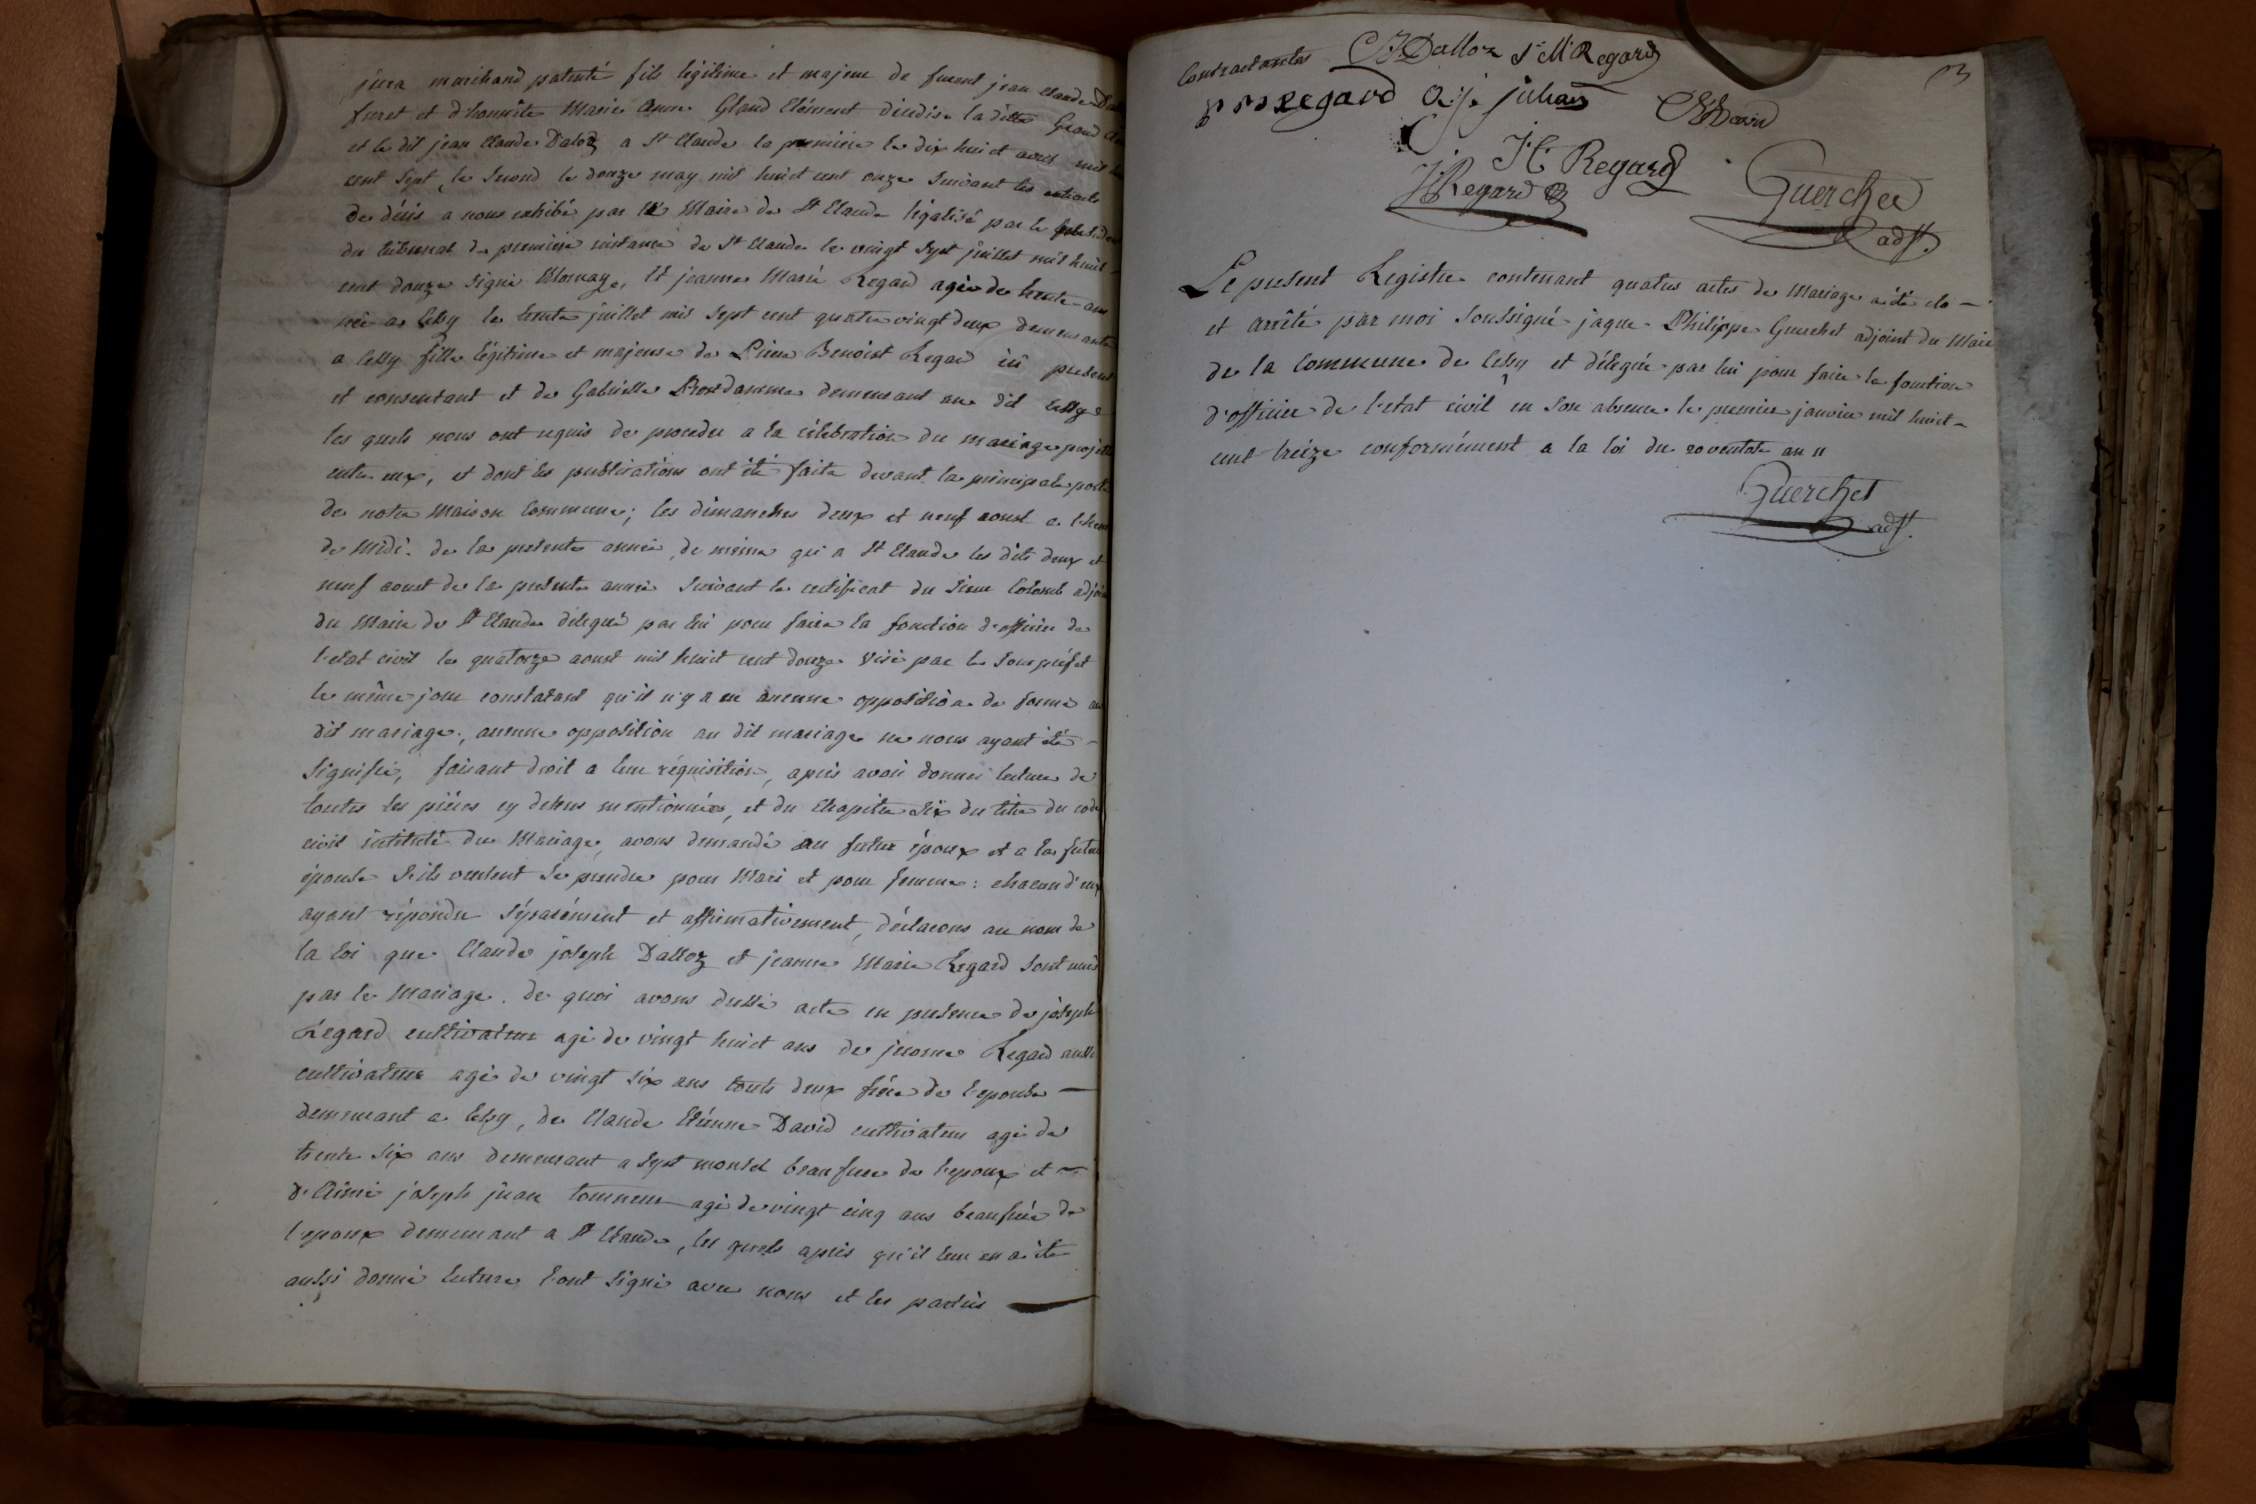 jura marchand patenté fils légitime et majeur de furent jean claude
furet et d'honnête Marie Anne Gland Clément la ditte Gland
et le dit jean Claude Daloz a St Claude la premiere le dix huict avril mil
cent sept, le second le douze may mil huict cent onze suivant les extraits
de décés a nous exhibé par le Maire de St Claude légalisé par le president
du tribunal de premiere instance de St Claude le vingt sept juillet mil huict
cent douze signé et jeanne Marie Regard agée de trente ans
née a Lessy le trente juillet mil sept cent quatre vingt deux demeurante
a Lessy fille légitime et majeure de Pierre Benoist Regard ici present
et consentant et de Gabrielle demeurant au dit Lessy
les quels nous ont requis de proceder a la célébration du mariage projetté
entre eux, et dont les publications ont été faite devant la principale porte
de notre Maison Commune; les dimanches deux et neuf aoust a l'heure
de Midi de la presente année, de même qu'a St Claude les dits deux et
neuf aoust de la presente année suivant le certificat du sieur Colomb adjoint
du Maire de St Claude délegué par lui pour faire la fonction d'officier de
l'etat civil le quatorze aoust mil huict cent douze visé par le souspréfet
le même jour constatant qu'il n'y a eu aucune opposition de formé au
dit mariage, aucune opposition au dit mariage ne nous ayant été -
signifié, faisant droit a leur réquisition, aprés avoir donner lecture de
toutes les piéces cy dessus mentionnées, et du chapitre six du titre du code
civil intitulé du Mariage, avons demandé au futur époux et a la future
épouse s'ils veulent se prendre pour Mari et pour femme: chacun d'eux
ayant répondu séparément et affirmativement, déclarons au nom de
la loi que Claude joseph Dalloz et jeanne Marie Regard sont unis
par le Mariage. de quoi avons dressé acte en presence de joseph
Regard cultivateur agé de vingt huict ans de jerome Regard aussi
cultivateur agé de vingt six ans touts deux frére de l'epouse —
demeurant a Lessy, de Claude Etienne David cultivateur agé de
trente six ans demeurant a Sept moncel beaufrere de l'epoux et —
d'Aimé joseph tourneur agé de vingt cinq ans beaufrére de
l'epoux demeurant a St Claude, les quels aprés qu'il leur en a été
aussi donné lecture l'ont signé avec nous et les parties —
Contractantes CJ Dalloz J M Regard
Regard A.j. julian David
J H Regard
J Regard
Guerchet
adjt.
3
Le present Registre contenant quatres actes de Mariage a été clo -
et arrêté par moi soussigné jaque Philippe Guerchet adjoint du Maire
de la Commune de Lessy et délegué par lui pour faire la fonction
d'officier de l'etat civil en son absence le premier janvier mil huict -
cent treize conformément a la loi du 20 ventose an 11
Guerchet
adjt.